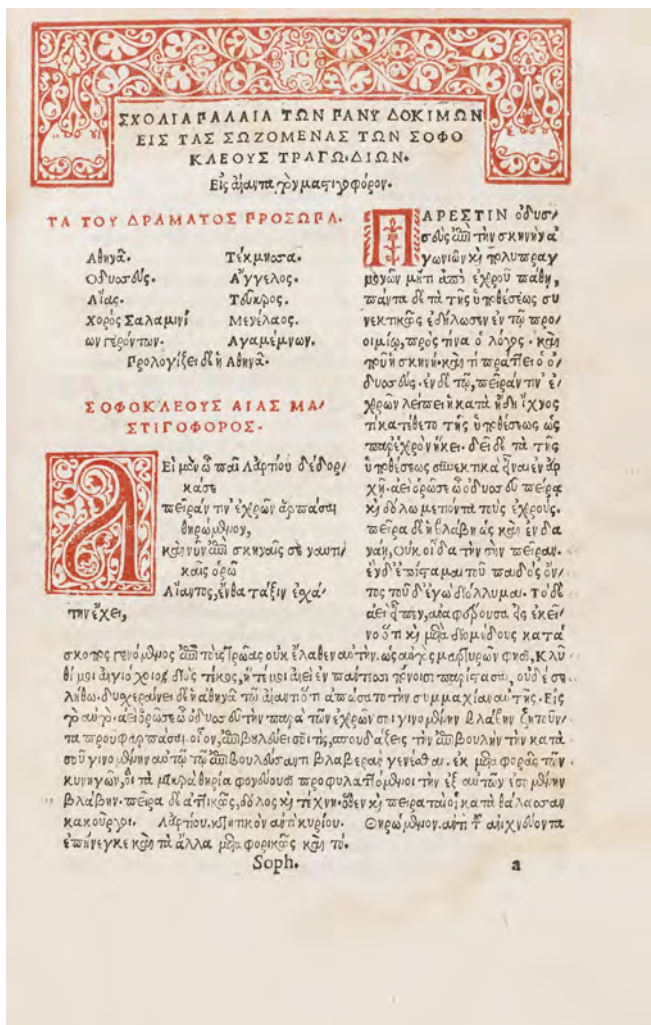 IC
ΣΧΟΛΙΑ ΠΑΛΑΙΑ ΤΩΝ ΠΑΝΥ ΔΟΚΙΜΩΝ
ΕΙΣ ΤΑΣ ΣΩΖΟΜΕΝΑΣ ΤΩΝ ΣΟΦΟ
ΚΛΕΟΥΣ ΤΡΑΓΩΙΔΙΩΝ.
Εἰς αἴαντα τὸν μαστιγοφόρον.
ΤΑ ΤΟΥ ΔΡΑΜΑΤΟΣ ΠΡΟΣΩΠΑ.
Αθηνᾶ. Τέκμησσα.
Οδυσσεύς. Αʹγγελος.
Αἴας. Τεῦκρος.
Χορὸς Σαλαμινί Μενέλαος.
ων γερόντων. Αγαμέμνων.
Προλογίζει δὲ ἡ Αθηνᾶ.
ΣΟΦΟΚΛΕΟΥΣ ΑΙΑΣ ΜΑ/
ΣΤΙΓΟΦΟΡΟΣ.
ΑΕὶ μὲν ὦ παῖ Λαρτίου δέδορ/
κάσε
πεῖράν τιν' ἐχθρῶν ἁρπάσαι
θηρώμενον,
καὶ νῦν ἐπὶ σκηναῖς σὲ ναυτι/
καῖς ὁρῶ
Αἴαντος, ἔνθα τάξιν ἐσχά/
την ἔχει,
ΠΑΡΕΣΤΙΝ ὀδυσ/
σεὺς ἐπὶ τὴν σκηνὴν ἀ
γωνιῶν καὶ πολυπραγ
μονῶν μή τι ἀπὸ ἐχθροῦ πάθη,
πάντα δὲ τὰ τῆς ὑποθέσεως συ
νεκτικῶς ἐδήλωσεν ἐν τῷ προ/
οιμίῳ, πρὸς τίνα ὁ λόγος. καὶ
ποῦ ἡ σκηνή. καὶ τί πράττει ὁ ὀ/
δυσσεύς. ἐν δὲ τῷ, πεῖράν τιν' ἐ/
χθρῶν λείπει ἡ κατὰ
τῆς ὑποθέσεως ὡς
δεῖ δὲ τὰ τῆς
ὑποθέσεως συνεκτικὰ εἶναι ἐν ἀρ
χῇ. ἀεὶ ὁρῶ σε ὦ ὀδυσσεῦ πείρᾳ
καὶ δόλῳ μετιόντα τοὺς ἐχθρούς.
πεῖρα δὲ ἡ βλάβη ὡς καὶ ἐν
οὐκ οἶδα τὴν σὴν πεῖραν.
παιδὸς ὄν/
τος τοῦδ' ἐγὼ διόλλυμαι. τὸ δὲ
ἀεὶ εἶπεν, ἀναφέρουσα εἰς ἐκεῖ/
νο ὅτι καὶ μετὰ διομήδους κατά
σκοπος γενόμενος ἐπὶ τοὺς τρῶας οὐκ ἔλαθεν αὐτήν. ὡς αὐτὸς μαρτυρῶν φησι, Κλῦ
θί μοι αἰγιόχοιο διὸς τέκος, ἥ τέ μοι αἰεὶ ἐν πάντεσσι πόνοισι παρίστασαι, οὐδέ σε
λήθω. δυσχεραίνει δὲ ἡ ἀθηνᾶ τῷ αἴαντι ὅτι ἀπώσατο τὴν συμμαχίαν αὐτῆς. Εἰς
τὸ αὐτό. ἀεὶ ὁρῶ σε ὦ ὀδυσσεῦ τὴν παρὰ τῶν ἐχθρῶν σοι γινομένην βλάβην ζητοῦν/
τα προϋφαρπάσαι. οἷον, ἐπιβουλεύει σοί τις, σπουδάζεις τὴν ἐπιβουλὴν τὴν κατὰ
σοῦ γινομένην αὐτῷ τῷ ἐπιβουλεύσαντι βλαβερὰν γενέσθαι. ἐκ μεταφορᾶς τῶν
κυνηγῶν, οἳ τὰ μικρὰ θηρία φονεύουσι προφυλαττόμενοι τὴν ἐξ αὐτῶν ἐσομένην
βλάβην. πεῖρα δὲ ἀττικῶς, δόλος καὶ τέχνη. ὅθεν καὶ πειραταὶ οἱ κατὰ θάλασσαν
κακοῦργοι. Λαρτίου. κτητικὸν ἀντὶ κυρίου. Θηρώμενον. ἀντὶ τοῦ ἀνιχνεύοντα
ἐπήνεγκε καὶ τὰ ἄλλα μεταφορικῶς καὶ τό.
Soph. a